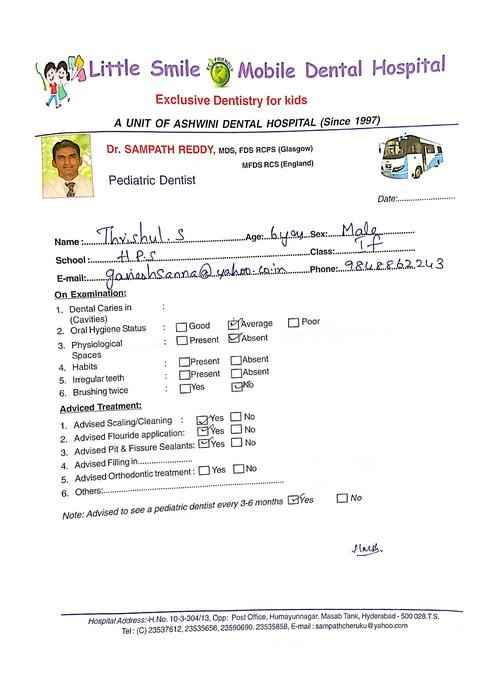 Little Smile ECO FRIENDLY Mobile Dental Hospital
Exclusive Dentistry for kids
A UNIT OF ASHWINI DENTAL HOSPITAL (Since 1997)
Dr. SAMPATH REDDY, MDS, FDS RCPS (Glasgow)
MFDS RCS (England)
Pediatric Dentist
Date:
Name: Thrishul.S Age: 6yoy Sex: Male
School: H.P.S Class: If
E-mail: ganeshsanna@yahoo.co.in Phone: 9848862243
On Examination:
1. Dental Caries in :
(Cavities)
2. Oral Hygiene Status : Good Average Poor
3. Physiological : Present Absent
Spaces
4. Habits : Present Absent
5. Irregular teeth : Present Absent
6. Brushing twice : Yes No
Adviced Treatment:
1. Advised Scaling/Cleaning : Yes No
2. Advised Flouride application: Yes No
3. Advised Pit & Fissure Sealants: Yes No
4. Advised Filling in
5. Advised Orthodontic treatment : Yes No
6. Others:
Note: Advised to see a pediatric dentist every 3-6 months Yes No
Hospital Address:-H.No. 10-3-304/13, Opp: Post Office, Humayunnagar, Masab Tank, Hyderabad - 500 028.T.S.
Tel : (C) 23537612, 23535656, 23590690. 23535858, E-mail : sampathcheruku@yahoo.com